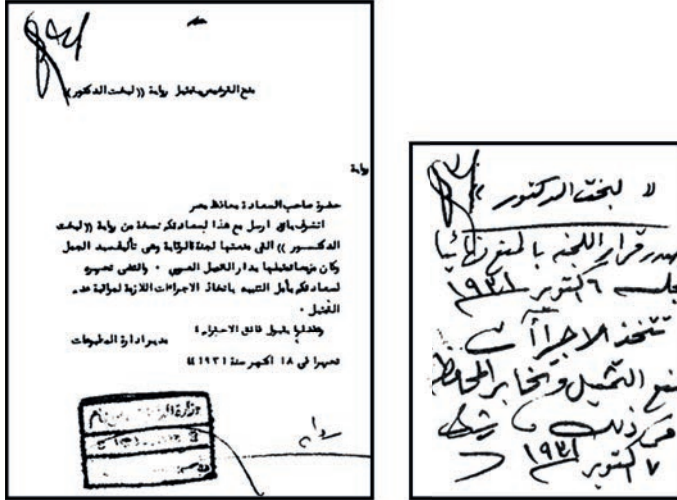 منع الترخيص بتمثيل رواية ((لبخت الدكتور))
رواية
حضرة صاحب السعادة محافظ مصر
اتشرف بان ارسل مع هذا لسعادتكم نسخة من رواية ((لبخت
الدكتور )) التى منعتها لجنة الرقابة وهى تأليف سيد الجمل
وكان مزمعا تمثيلها بدار التمثيل العربى ٠ والمقتضى
لسعادتكم بأمل التنبيه باتخاذ الاجراءات اللازمة لمراقبة عدم
التمثيل ٠
وتفضلوا بقبول فائق الاحترام ؛
مدير ادارة المطبوعات
تحريرا فى ١٨ اكتوبر سنة ١٩٣١ ))
(( لبخت الدكتور ))
صدر قرار اللجنه بالمنع نهائيا
بجلسه ٦ اكتوبر ١٩٣١
تتخذ الاجراآت
لمنع التمثيل وتخابر المحافظه
فى ذلك
٧ اكتوبر ١٩٣١